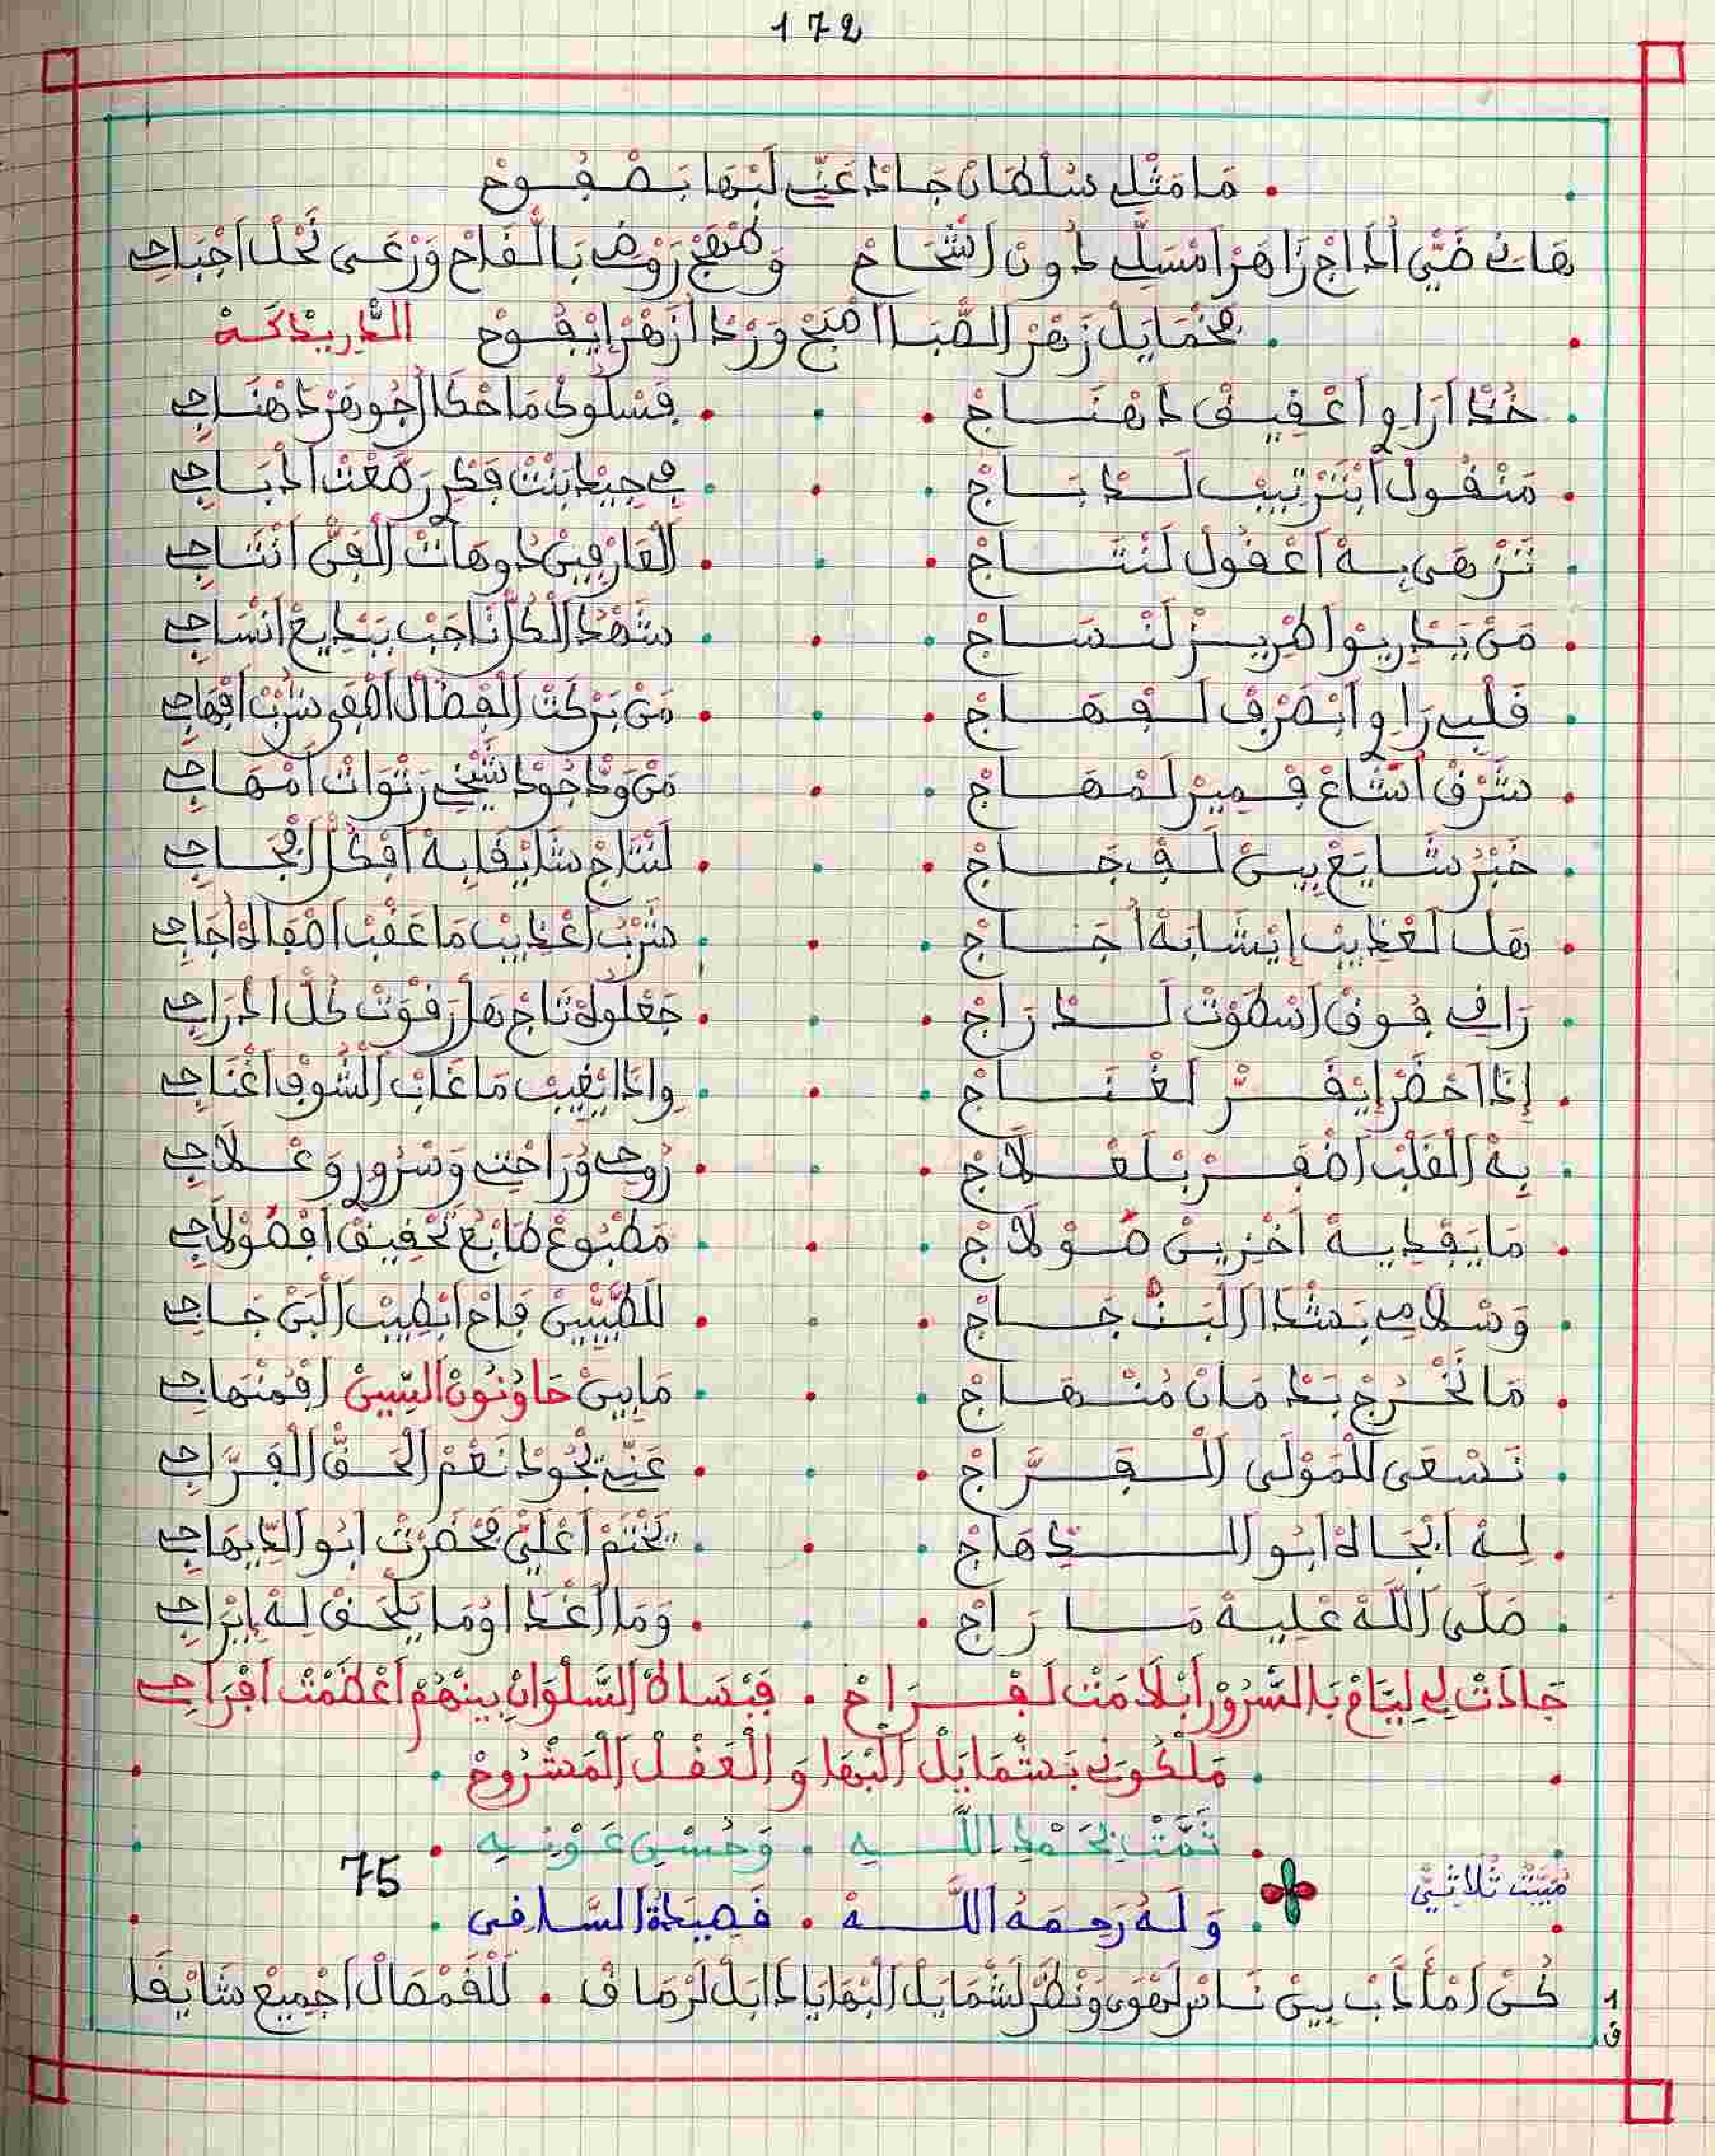 172
مَا مَثْلِي سُلْطَانْ جَادْ عَنِّي لَبْهَا بَصْفُوحْ
هَانِي ضَيّْ الدَّاجْ زَاهَرْ امْسَلِّي دُونْ اشْحَاحْ وَطْهَجْ رَوْضِي بَالْقَاحْ وَرْعَى نَحْلْ اجْبَاحِي
بَخْمَايَلْ زَهْرْ الصّْبَا افْبَحْ وَرْدْ ازْهَرْ ايْفُوحْ الدَّرِيدْكَةْ
خُذْ ارَاوِ اعْقِيقْ دَهْنَاجْ . فَسْلُوكْ مَا حْكَا الْجُوهَرْ دَهْنَاجِي
مَنْقُولْ ابْتَرْتِيبْ لَدْبَاجْ . فِي جِيدْ بَنْتْ فَكْرِ رَصَّعْتْ ادْبَاجِي
تَزْهَى بِهْ اعْقُولْ لَنْتَاجْ . الْعَارْفِينْ دُوهَاتْ الْفَنّْ انْتَاجِي
مَنْ يَدْرِيوْ اطْرِيزْ لَنْسَاجْ . شَهْدْ الْكُلّْ نَاجَبْ بَبْدِيعْ انْسَاجِي
قَلْبِي رَاوِ ابْصَرْفْ لَفْهَاجْ . مَنْ بَرْكَتْ الْفْضَالْ اصْفَى شُرْبْ افْهَاجِي
شَرْقْ اشْعَاعْ قْمِيرْ لَمْهَاجْ . مَنْ وَدّْ جُودْ شَيْخِي رَتْوَاتْ امْهَاجِي
خَبْرْ شَايَعْ بِينْ لَفْجَاجْ . لَنْتَاجْ شَايْقَا بِهْ افْكُلّْ افْجَاجِي
هَلْ لَعْذِيبْ إيْشَابَهْ اُجَاجْ . شُرْبْ اعْذِيبْ مَا عَقْبْ اصْفَاهْ اُجَاجِي
رَاقِي فُوقْ اسْطَوْتْ لَدْرَاجْ . جَعْلُوهْ تَاجْ هَلْ رَقْوَتْ كُلّْ ادْرَاجِي
إذَا احْضَرْ إيْقَرّْ لَغْنَاجْ . وِإذَا ايْغِيبْ مَا غَابْ الشُّوقْ اغْنَاجِي
بِهْ الْقَلْبْ اضْفَرْ بْلَعْلَاجْ . رُوحِي وُرَاحْتِي وَسْرُورِ وَعْلَاجِي
مَا يَفْدِيهْ اخْزِينْ صُوْلَاجْ . مَطْبُوعْ طَابْعْ تَحْقِيقْ افْصُوْلَاجِي
وَسْلَامِي بَشْدَا الْبَنْجَاجْ . لَلطَّيّْبِينْ فَاحْ ابْطِيبْ الْبَنْجَاجِي
مَا نَخْرُجْ بَدْمَانْ مُنْهَاجْ . مَا بِينْ حَاوْنُونْ السِّينْ افْمُنْهَاجِي
نَسْعَى لْلْمَوْلَى الْفَرَّاجْ . عَنِّي يْجُودْ نَعْمْ الْحَقّْ الْفَرَّاجِي
لِهْ انْجَاهْ ابُو الدِّهَاجْ . يَخْتَمْ اعْلَيّْ بَحْضَرْتْ ابُو الدِّيهَاجِي
صَلَّى اللَّهْ عْلِيهْ مَا رَاجْ . وَمَا اغْدَا اوُمَا يَلْحَقْ لِهْ إبْرَاجِي
جَادَتْ لِي لِيَّامْ بَالسُّرُورْ ابْلَامَتْ لَفْرَاحْ . فَبْسَاطْ السَّلْوَانْ بِينْهُمْ اعْظَمْتْ افْرَاحِي
مَلْكُونِي بَشْمَايَلْ الْبْهَا وَ الْعَقْلْ الْمَشْرُوحْ
تَمَّتْ بِحَمْدِ اللَّهِ . وَحُسْنِ عَوْنِهِ
75
مْبَيّْتْ ثُلَاثِيّْ
وَلَهُ رَحِمَهُ اللَّهْ . قَصِيدَةُ السَّاقِي
كُنْ امْأَدَّبْ بِينْ نَاسْ لَهْوَى وَنْظَرْ لَشْمَايَلْ الْبْهَا يَا دَابَلْ لَرْمَاقْ . لَلْقَمْصَالْ اجْمِيعْ شَايْقَا
1
ق